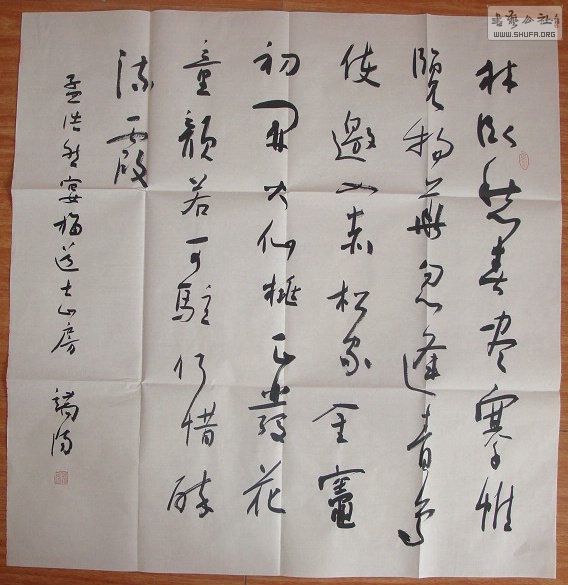 書藝公社
WWW.SHUFA.ORG
林卧愁春尽搴帷
覽物華忽逢青鳥
使邀入赤松家金竈
初開火仙桃正發花
童顏若可駐何惜醉
流霞
孟浩然宴梅道士山房